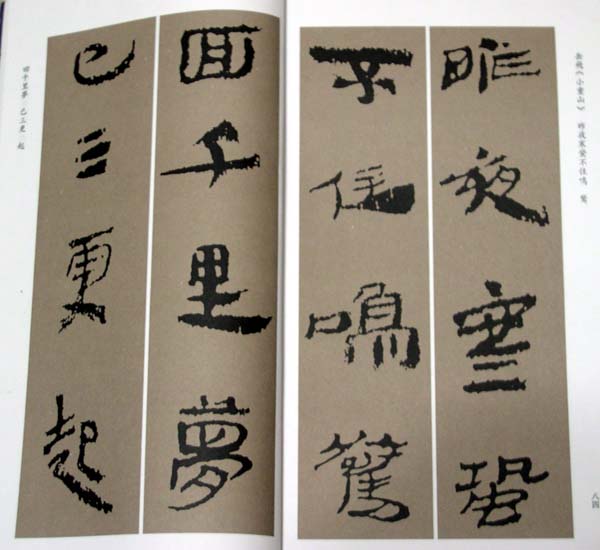 岳飛《小重山》 昨夜寒蛩不住鳴 驚
昨夜寒蛩
不住鳴驚
回千里夢
已三更起
回千里夢 已三更 起
八四